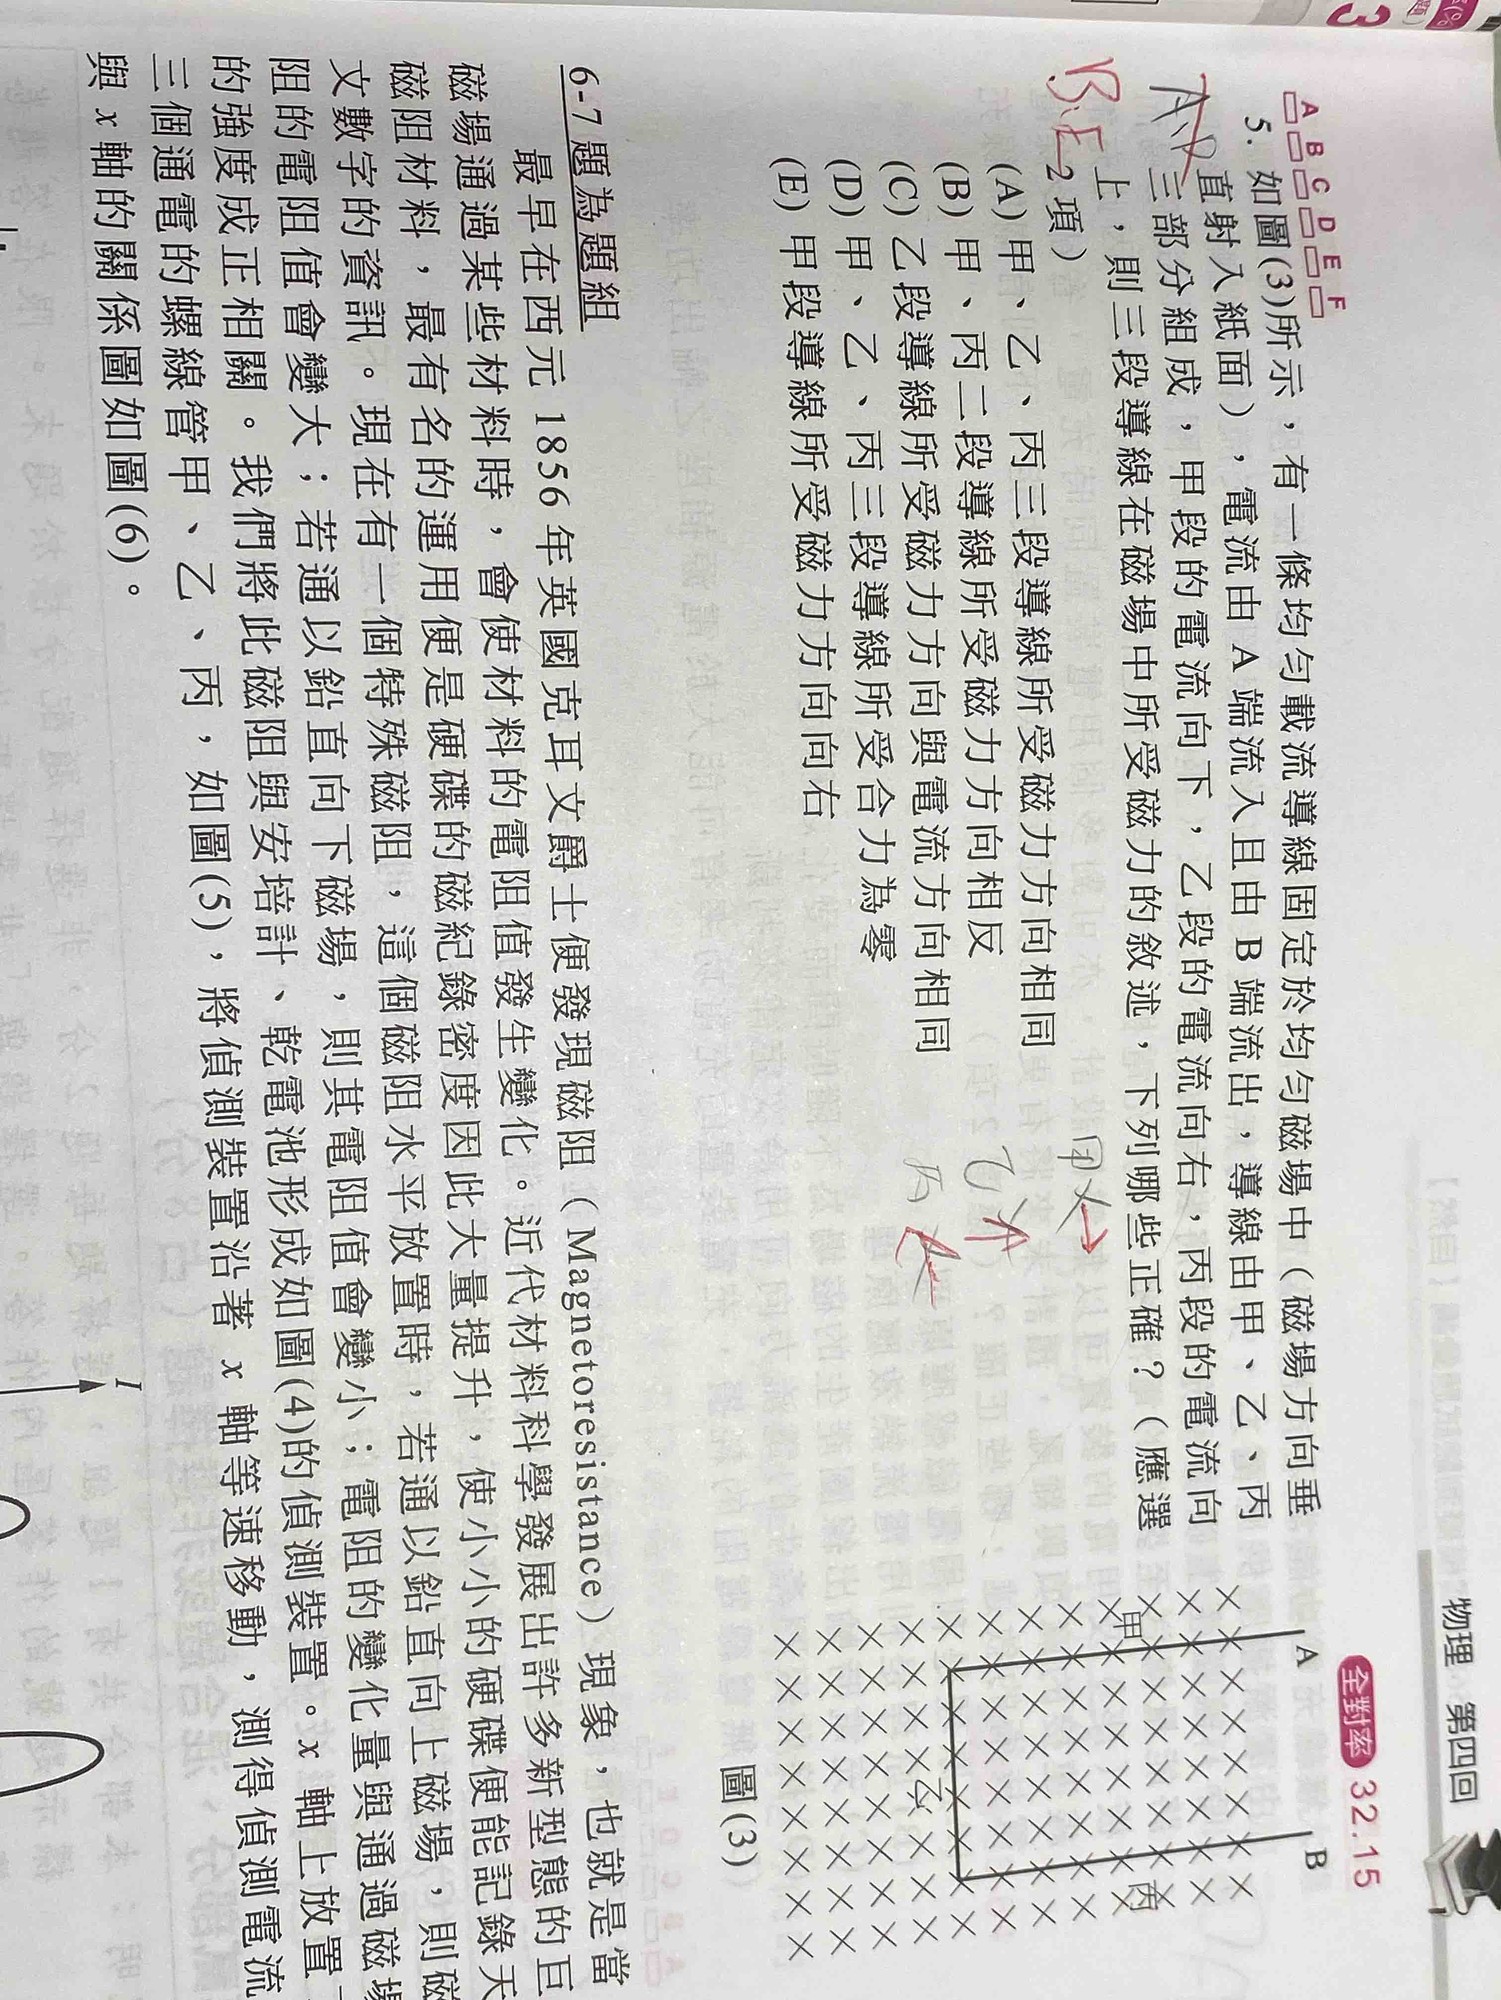 物理 第四回
3
全對率 32.15
A B C D E F
5. 如圖(3)所示，有一條均勻載流導線固定於均勻磁場中（磁場方向垂
直射入紙面），電流由 A 端流入且由 B 端流出，導線由甲、乙、丙
三部分組成，甲段的電流向下，乙段的電流向右，丙段的電流向
上，則三段導線在磁場中所受磁力的敘述，下列哪些正確？（應選
2 項）
B.E
(A) 甲、乙、丙三段導線所受磁力方向相同
(B) 甲、丙二段導線所受磁力方向相反
(C) 乙段導線所受磁力方向與電流方向相同
(D) 甲、乙、丙三段導線所受合力為零
(E) 甲段導線所受磁力方向向右
甲
乙
丙
A
B
甲
乙
丙
圖(3)
6-7 題為題組
最早在西元 1856 年英國克耳文爵士便發現磁阻（Magnetoresistance）現象，也就是當
磁場通過某些材料時，會使材料的電阻值發生變化。近代材料科學發展出許多新型態的巨
磁阻材料，最有名的運用便是硬碟的磁紀錄密度因此大量提升，使小小的硬碟便能記錄天
文數字的資訊。現在有一個特殊磁阻，這個磁阻水平放置時，若通以鉛直向上磁場，則磁
阻的電阻值會變大；若通以鉛直向下磁場，則其電阻值會變小；電阻的變化量與通過磁場
的強度成正相關。我們將此磁阻與安培計、乾電池形成如圖(4)的偵測裝置。x 軸上放置
三個通電的螺線管甲、乙、丙，如圖(5)，將偵測裝置沿著 x 軸等速移動，測得偵測電流
與 x 軸的關係圖如圖(6)。
I